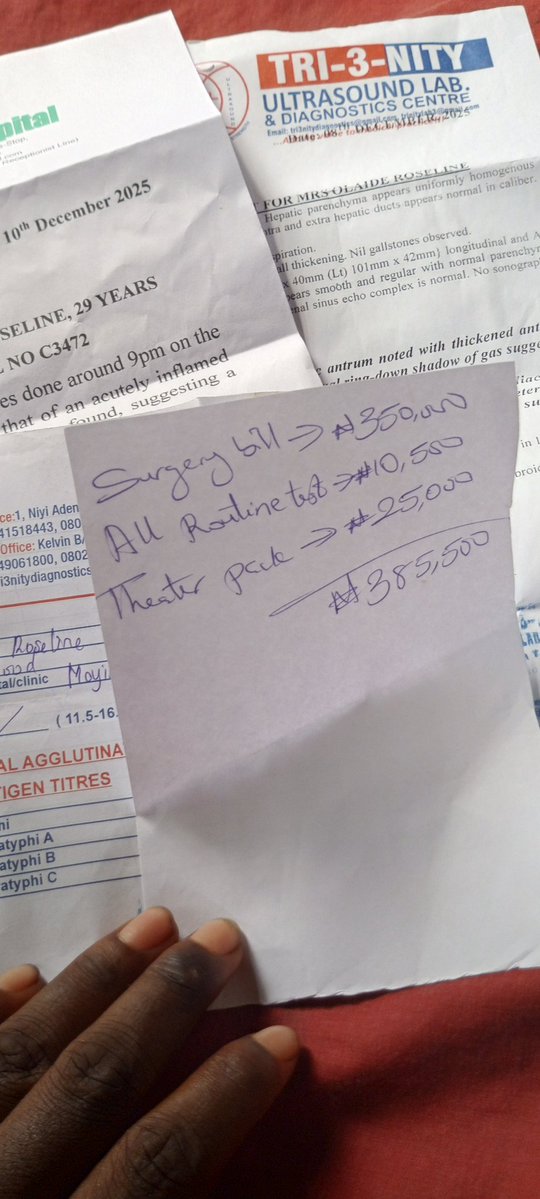 pital
-Stop,
.com
Receptionist Line)
10th December 2025
SELINE, 29 YEARS
L NO C3472
es done around 9pm on the
that of an acutely inflamed
found, suggesting a
TRI-3-NITY
ULTRASOUND LAB.
& DIAGNOSTICS CENTRE
DECEMBER, 2025
FOR MRS OLAIDE ROSELINE
Hepatic parenchyma appears uniformly homogenous
tra and extra hepatic ducts appears normal in caliber.
piration.
all thickening. Nil gallstones observed.
x 40mm (Lt) 101mm x 42mm} longitudinal and A
ears smooth and regular with normal parenchy
nal sinus echo complex is normal. No sonograp
antrum noted with thickened ant
ring-down shadow of gas sugge
Surgery bill → ₦350,000
All Routine test → ₦10,500
Theater pack → ₦25,000
₦385,500
ce:1, Niyi Aden
41518443, 080
Office: Kelvin B
49061800, 0802
i3nitydiagnostics
Roseline
tal/clinic Moyi
(11.5-16.
AL AGGLUTINA
TIGEN TITRES
hi
atyphi A
atyphi B
atyphi C